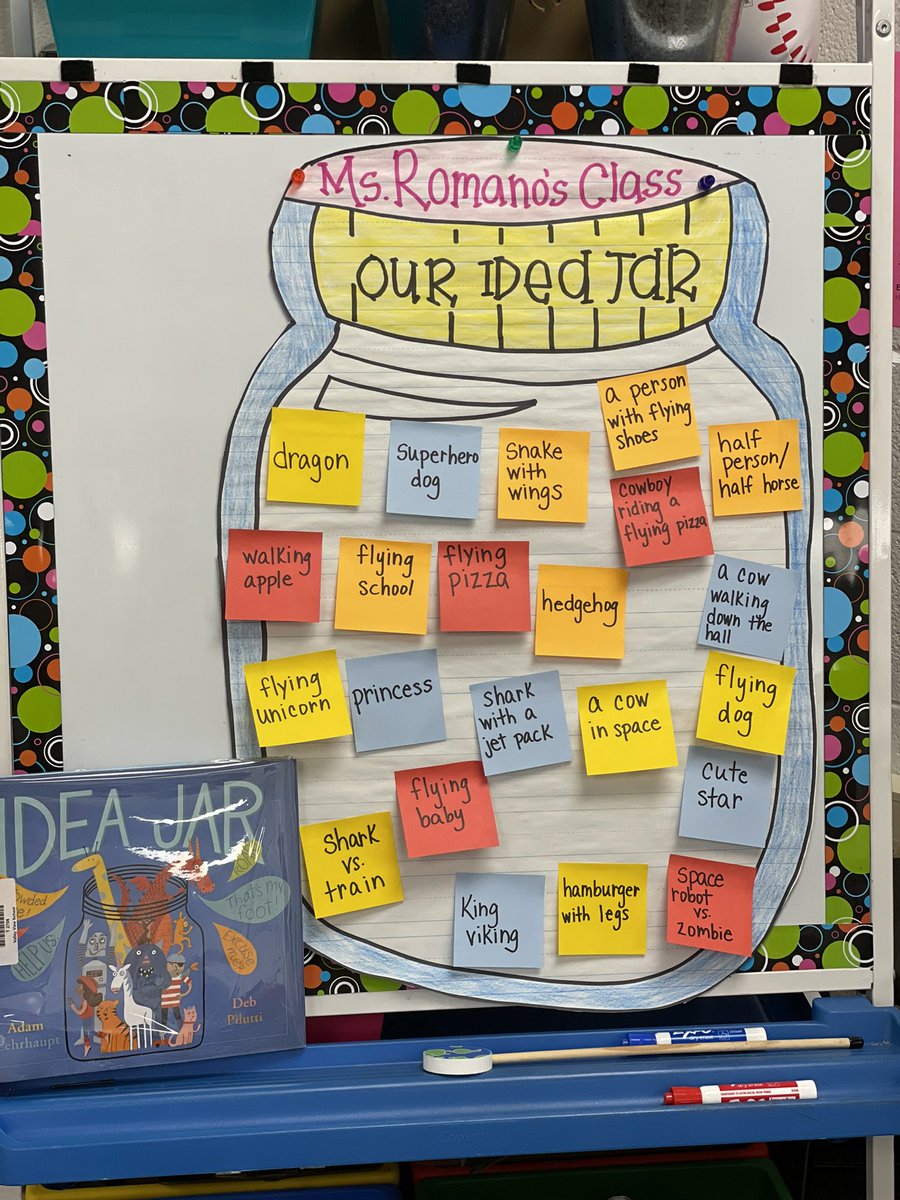 Ms. Romano's Class
OUR IDea JaR
a person
with flying
shoes
dragon
Superhero
dog
Snake
with
wings
half
person/
half horse
cowboy
riding a
flying pizza
walking
apple
flying
school
flying
pizza
hedgehog
a cow
walking
down the
hall
flying
unicorn
princess
shark
with a
jet pack
a cow
in space
flying
dog
cute
star
flying
baby
Shark
vs.
train
King
viking
hamburger
with legs
Space
robot
vs.
zombie
IDEA JAR
THAT'S MY
FOOT!
HELP US
EXCUSE
ME?
Adam
ehrhaupt
Deb
Pilutti